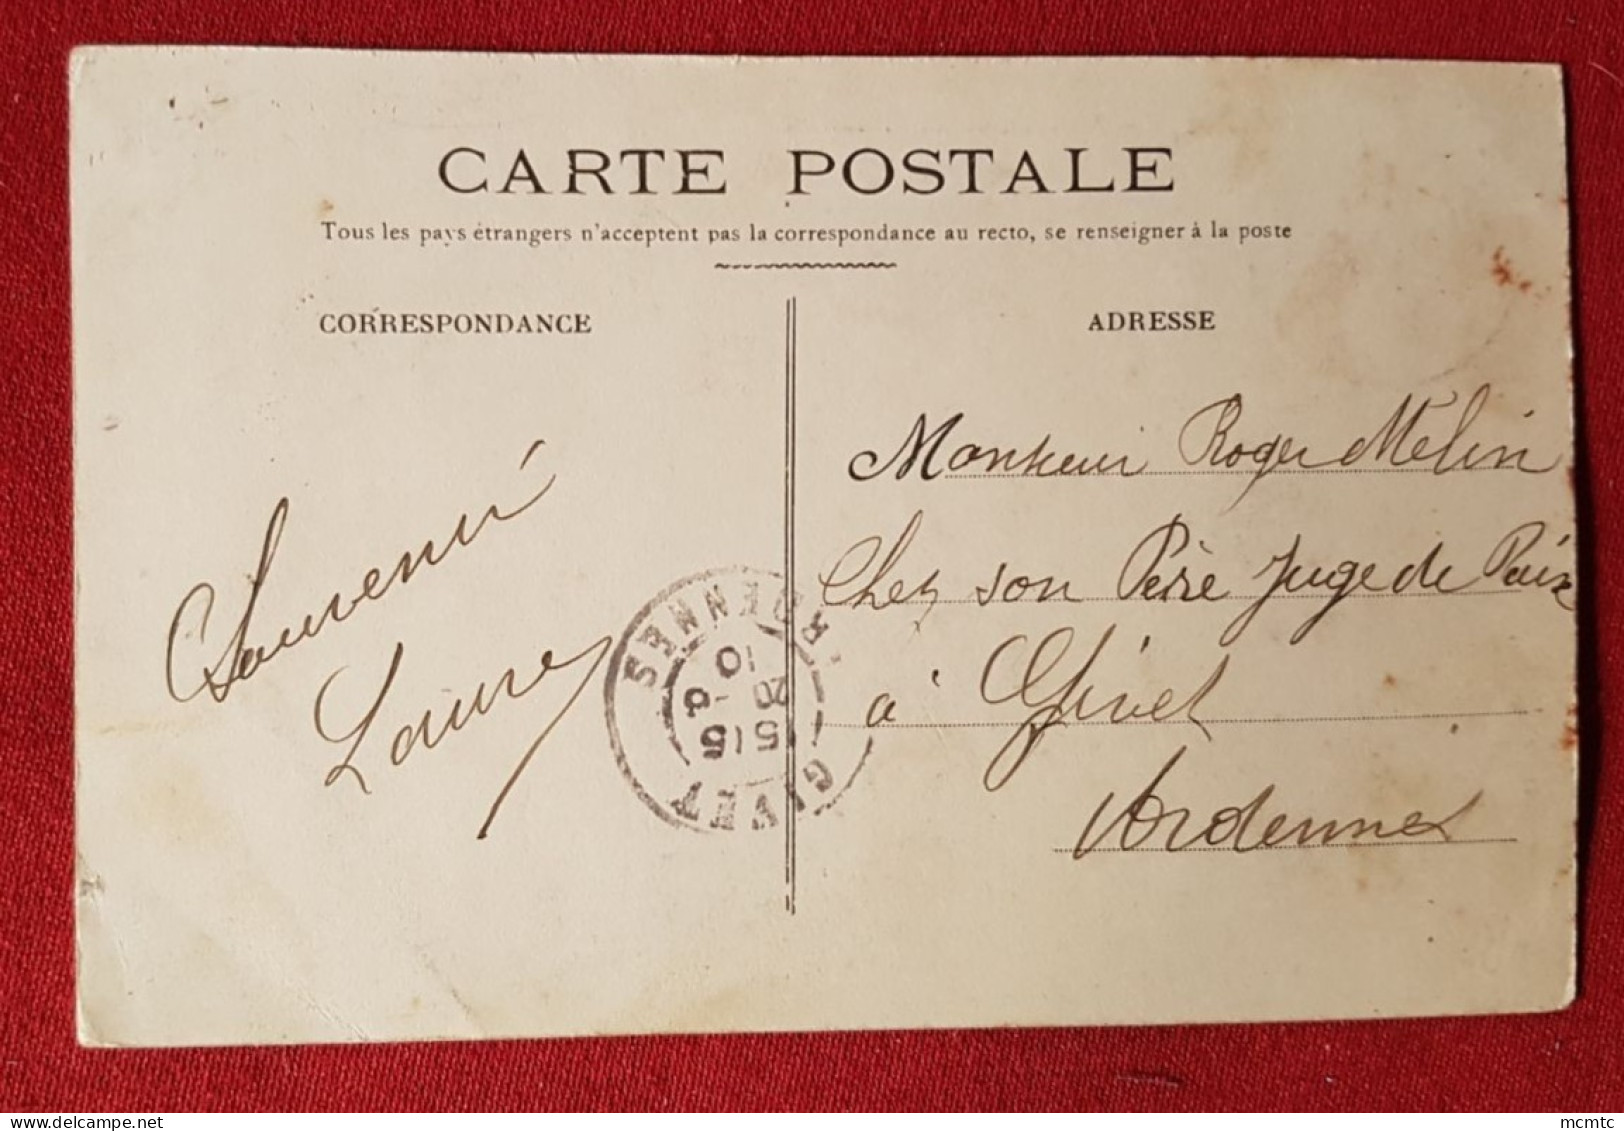 CARTE POSTALE
Tous les pays étrangers n'acceptent pas la correspondance au recto, se renseigner à la poste
CORRESPONDANCE
ADRESSE
Souvenir
Laure
Monsieur Roger Melin
Chez son Père Juge de Paix
à Givet
Ardennes
GIVET
ARDENNES
15 15
20 - 8
10
delcampe.net
mcmtc